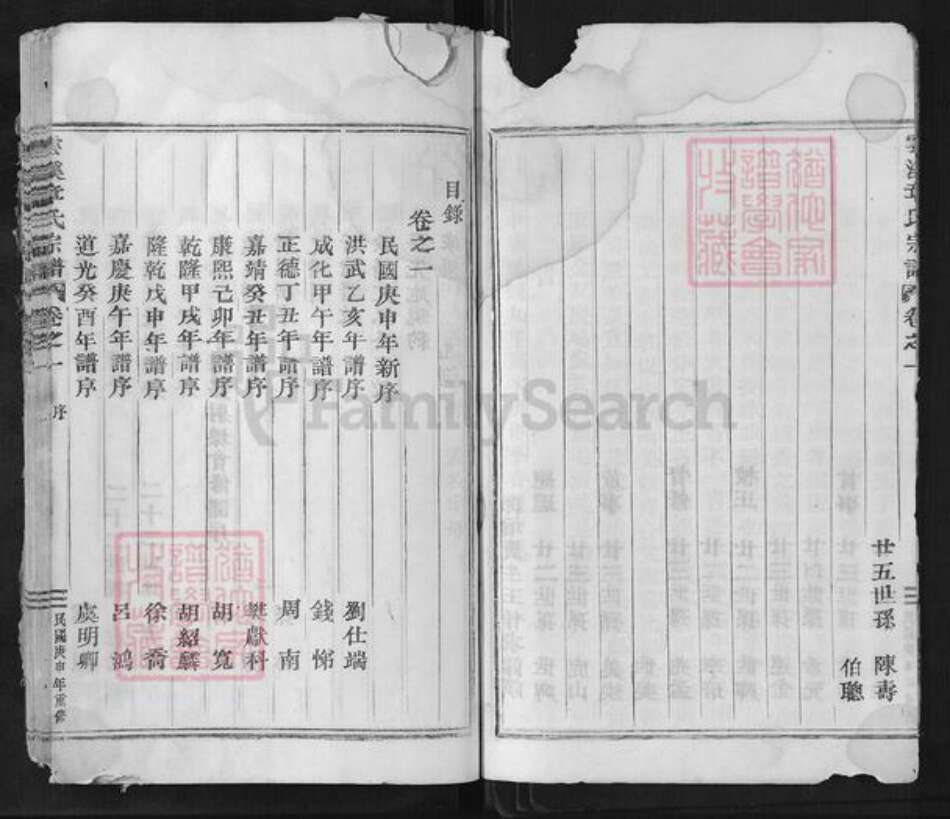 廿五世孫 陳壽
伯聰
目錄
卷之一
民國庚申年新序
洪武乙亥年譜序 劉仕端
成化甲午年譜序 錢悌
正德丁丑年譜序 周南
嘉靖癸丑年譜序 樊獻科
康熙己卯年譜序 胡寬
乾隆甲戌年譜序 胡紹麟
隆乾戊申年譜序 徐喬
嘉慶庚午年譜序 呂鴻
道光癸酉年譜序 虞明卿
章氏宗譜 卷之一 序 民國庚申年重修
章氏宗譜 卷之一
FamilySearch